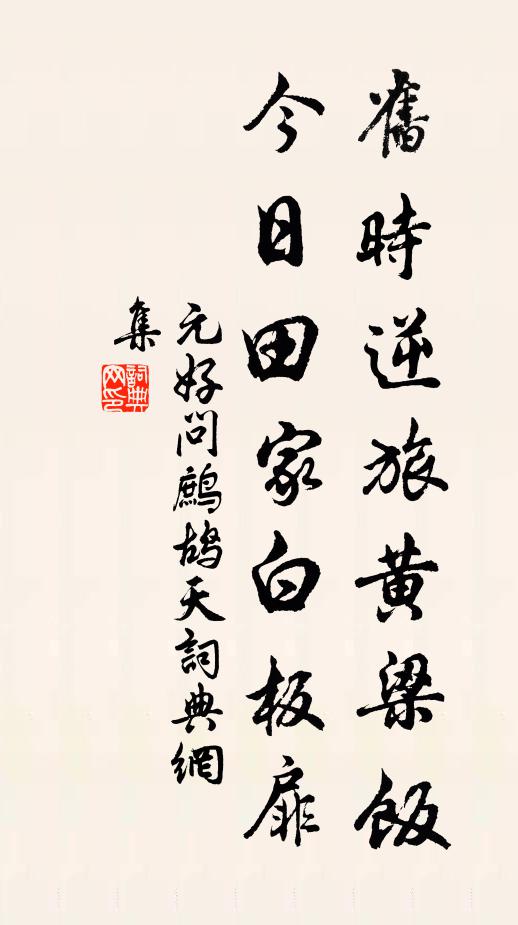 舊時逆旅黃粱飯
今日田家白板扉
元好問鷓鴣天詞典網
集
詞典網印